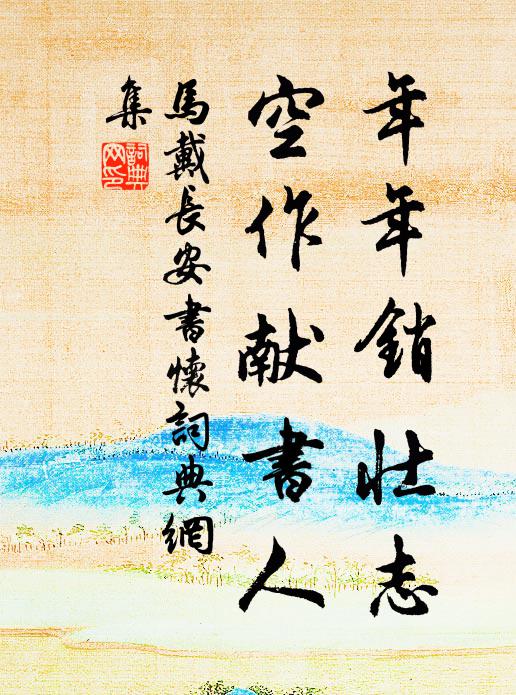 年年銷壯志
空作献書人
馬戴長安書懷詞典網
集
詞典
网印